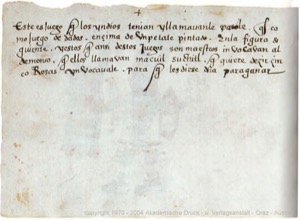 este es Juego q̃ los yndios tenian y llamavanle patole, q̃ es co
mo juego de dados, en cima de Un petate pintado. En la figura si
guiente. y estos q̃ eran destos juegos son maestros in Vocavan al
demonio, q̃ ellos llamavan macuil suchitl, q̃ quiere dezir cin
co Rosas Un Vocavale. para q̃ les diese dia para ganar
copyright 1970 - 2004 Akademische Druck - u. Verlagsanstalt - Graz - Austria